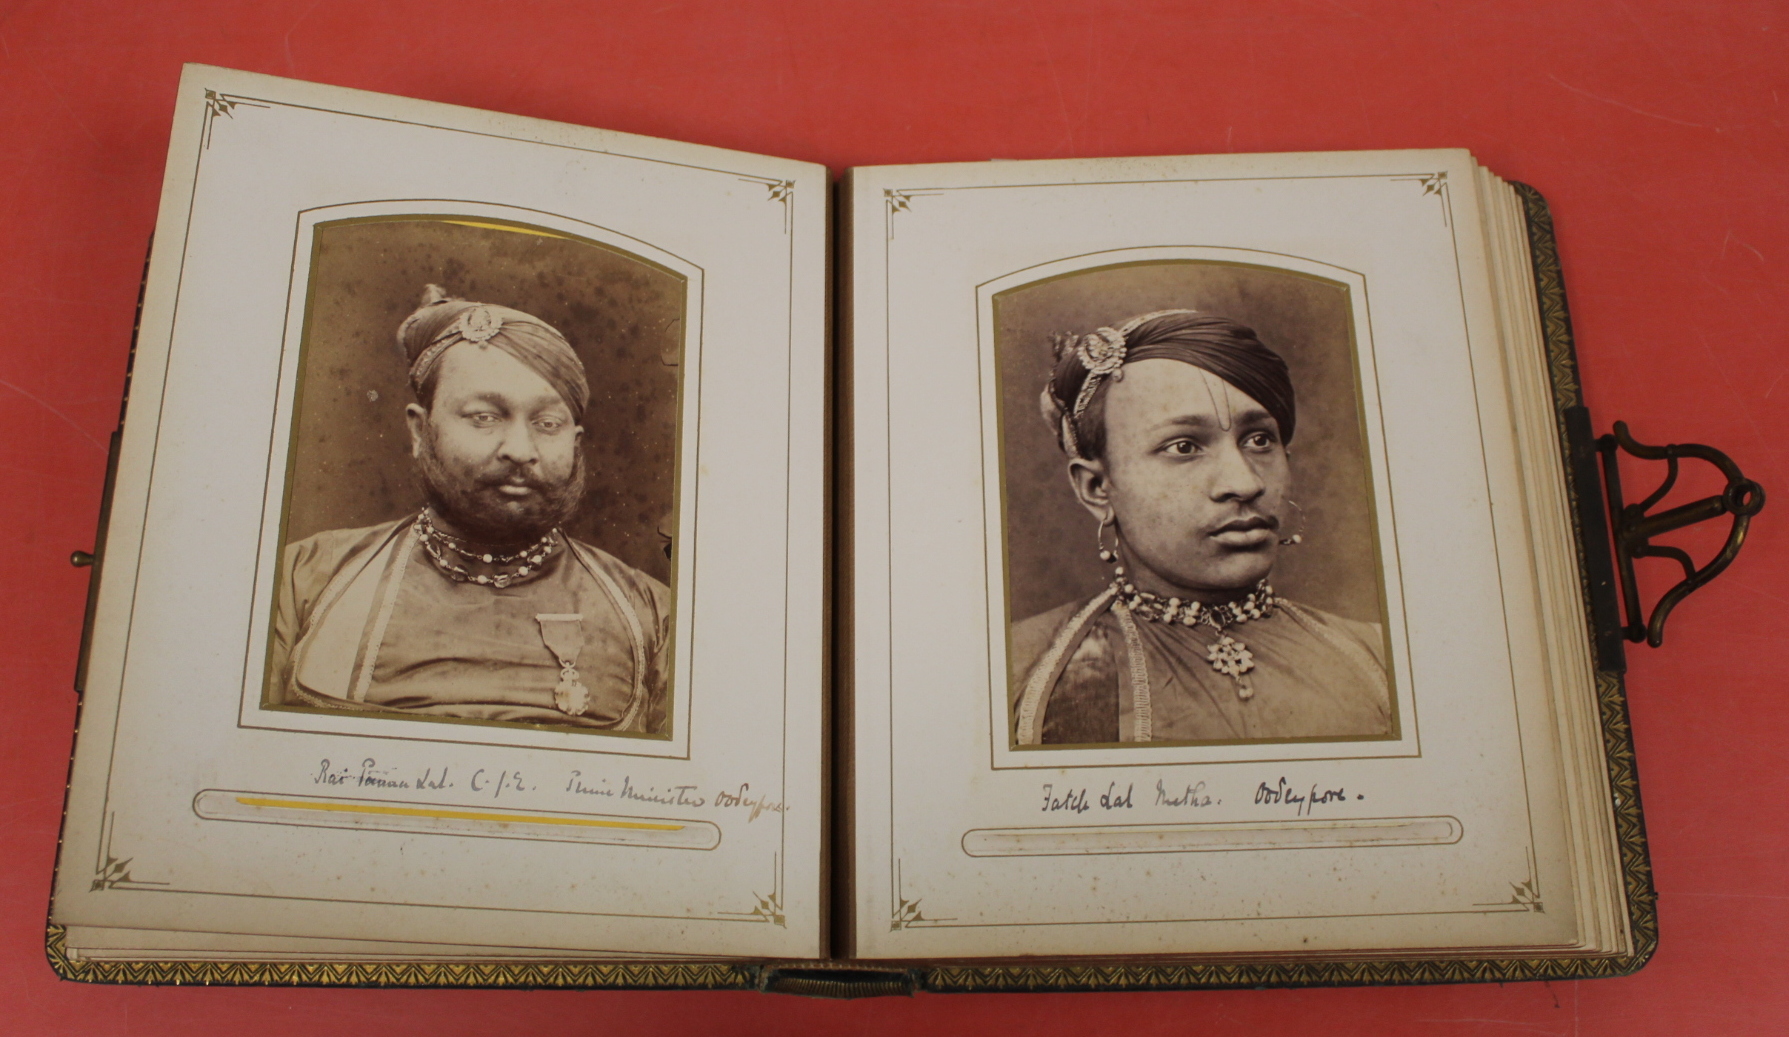 Rai Panna Lal. C.I.E. Prime Minister Oodeypore.
Fateh Lal Metha. Oodeypore.